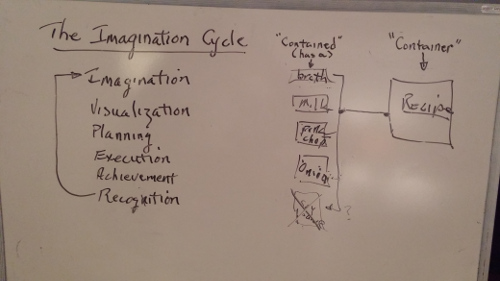 The Imagination Cycle
Imagination
Visualization
Planning
Execution
Achievement
Recognition
"Contained"
(has a)
broth
milk
Pork
chop
Onion
?
"Container"
Recipe